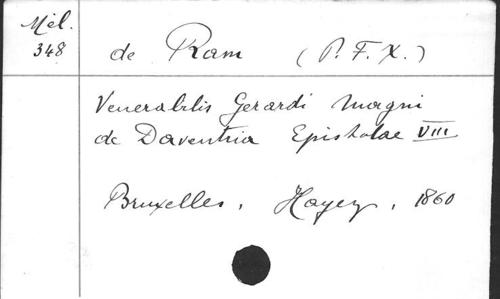 Mél.
348
de Ram (P. F. X.)
Venerabilis Gerardi Magni
de Daventria Epistolae VIII
Bruxelles, Hayez, 1860